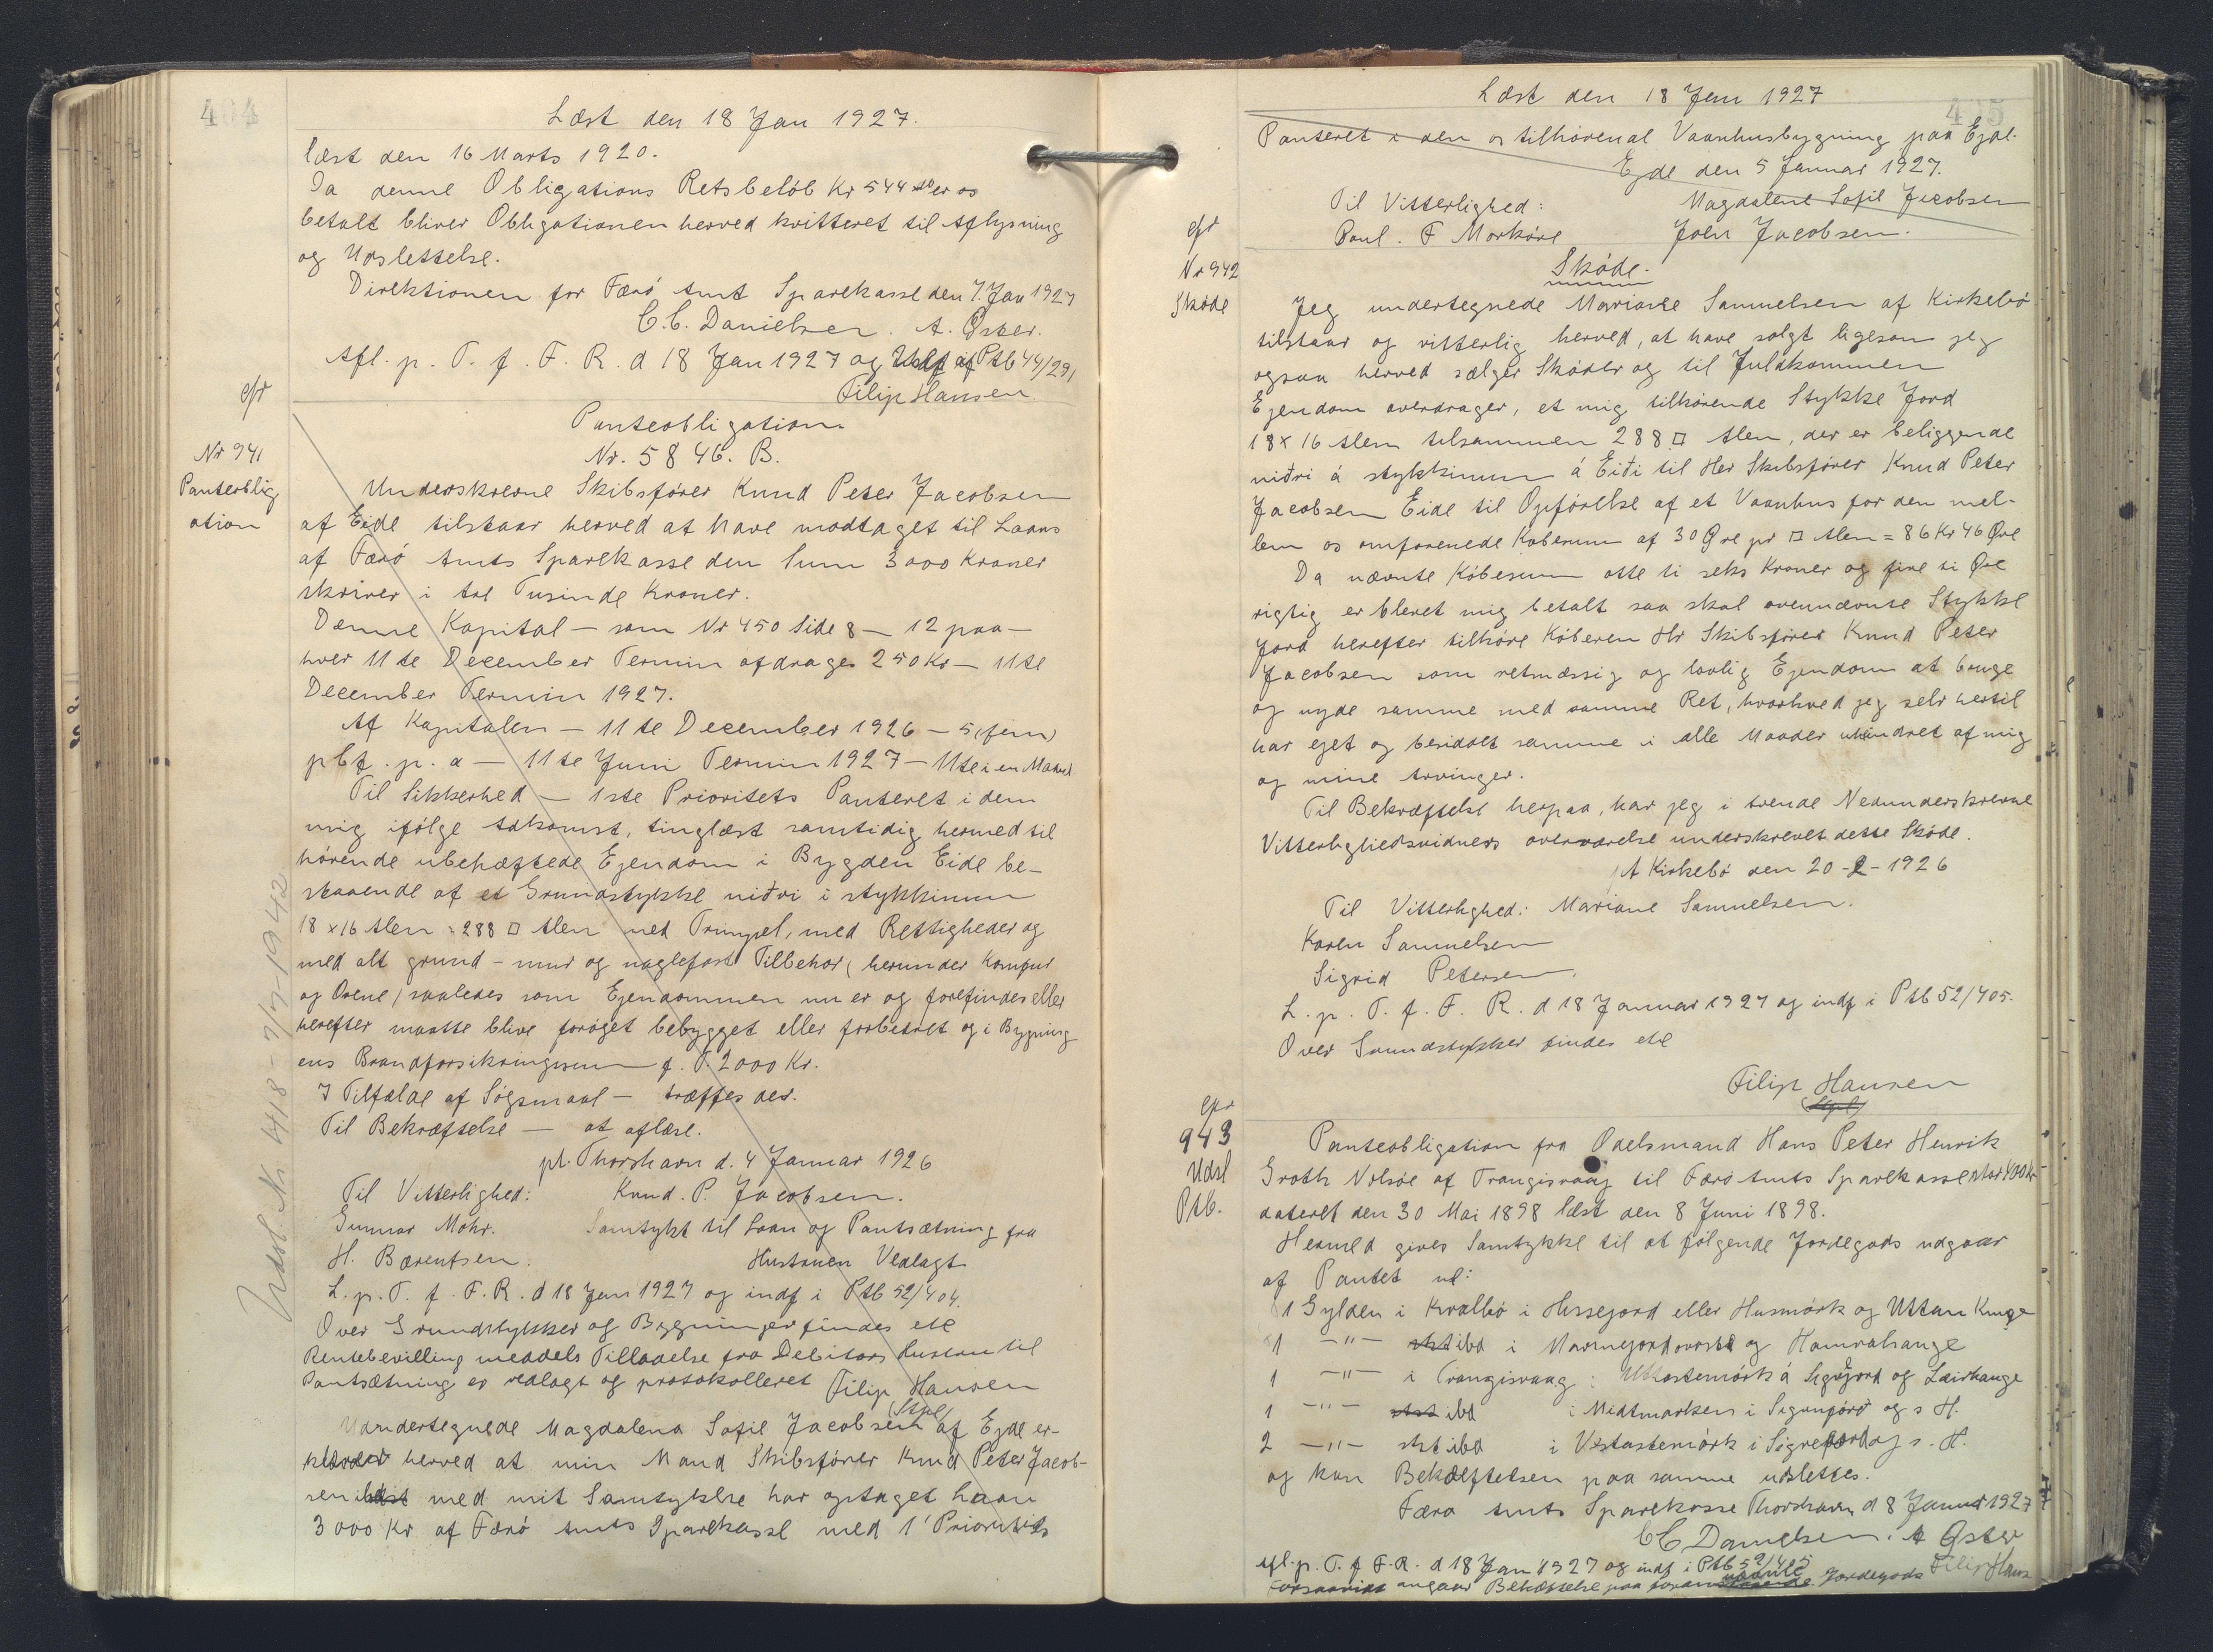 404
Læst den 18 Jan 1927.
læst den 16 Marts 1920.
Da denne Obligations Retsbeløb Kr 544 er os
betalt bliver Obligationen herved kvitteret til Aflysning
og Udslettelse.
Direktionen for Færö Amt Sparekasse den 7. Jan 1927
C. C. Danielsen. A. Öster.
Afl. p. T. f. F. R. d 18 Jan 1927 og Udsl af Ptb 44/291
Filip Hansen
Panteobligation
Nr. 5846. B.
Nr 941
Panteoblig
ation
Underskrevne Skibsfører Knud Peter Jacobsen
af Eide tilstaar herved at have modtaget til Laans
af Færö Amts Sparekasse den Sum 3000 Kroner
skriver i tre Tusinde Kroner.
Denne Kapital — som Nr 450 Side 8 — 12 paa —
hver 11te December Termin afdrages 250 Kr — 11te
December Termin 1927.
Af Kapitalen — 11te December 1926 — 5 (fem)
pCt. p. a — 11te Juni Termin 1927 — 11te i en Maaned
Til Sikkerhed — 1ste Prioritets Panteret i dem
mig ifølge Adkomst, tinglæst samtidig hermed til
hørende ubehæftede Ejendom i Bygden Eide be-
staaende af et Grundstykke niðri i stykkinum
18 x 16 Alen = 288 □ Alen med Trimpel, med Rettigheder og
med alt grund - mur og naglefast Tilbehør (herunder Komfur
og Ovene) saaledes som Ejendommen nu er og forefindes eller
herefter maatte blive forøget bebygget eller forbedret og i Bygning
ens Brandforsikringssum f. T. 2000 Kr.
I Tilfælde af Søgsmaal — træffes der.
Til Bekræftelse — at aflæse.
pt. Thorshavn d. 4 Januar 1926
Til Vitterlighed: Knud. P. Jacobsen.
Gunnar Mohr. Samtykt til Laan og Pantsætning fra
H. Bærentsen. Hustruen Vedlagt
L. p. T. f. F. R. d 18 Jan 1927 og indf i Ptb 52/404.
Over Grundstykker og Bygninger findes ell
Rentebevilling meddels Tilladelse fra Debitors Hustru til
Pantsætning er vedlagt og protokolleret Filip Hansen
Undertegnede Magdalena Sofie Jacobsen af Ejde er-
klærer herved at min Mand Skibsfører Knud Peter Jacob-
sen ibd med mit Samtykke har optaget Laan
3000 Kr af Færö Amts Sparekasse med 1' Prioritets
Udsl. Nr. 418 - 7/7-1942
405
Læst den 18 Jan 1927
Panteret i den os tilhørende Vaanhusbygning paa Ejde.
Ejde den 5 Januar 1927.
Til Vitterlighed: Magdalene Sofie Jacobsen
Poul. F Morköre Joen Jacobsen.
Nr 942
Skøde
Skøde.
Jeg undertegnede Mariane Samuelsen af Kirkebø
tilstaar og vitterlig herved, at have solgt ligesom jeg
ogsaa herved sælger Skøder og til Fuldkommen
Ejendom overdrager, et mig tilhørende Stykke Jord
18 x 16 Alen tilsammen 288 □ Alen, der er beliggende
niðri á stykkinum á Eiði til Her Skibsfører Knud Peter
Jacobsen Eide til Opførelse af et Vaanhus for den mel-
lem os omforenede Købesum af 30 Øre pr □ Alen = 86 Kr 40 Øre
Da nævnte Købesum otte ti seks Kroner og fire ti Øre
rigtig er blevet mig betalt saa skal ovennævnte Stykke
Jord herefter tilhøre Køberen Hr Skibsfører Knud Peter
Jacobsen som retmæssig og lovlig Ejendom at bruge
og nyde samme med samme Ret, hvorhved jeg selv hertil
har ejet og besiddet samme i alle Maader uhindret af mig
og mine Arvinger.
Til Bekræftelse herpaa, har jeg i tvende Nedunderskrevne
Vitterlighedsvidners overværelse underskrevet dette Skøde.
pt Kirkebø den 20-2-1926
Til Vitterlighed: Mariane Samuelsen.
Karen Samuelsen
Sigrid Petersen.
L. p. T. f. F. R. d 18 Januar 1927 og indf i Ptb 52/405.
Over Grundstykker findes ell
Filip Hansen
943
Udsl
Ptb.
Panteobligation fra Odelsmand Hans Peter Henrik
Groth Nolsøe af Trangisvaag til Færö Amts Sparekasse stor 400 Kr
dateret den 30 Mai 1898 læst den 8 Juni 1898.
Hermed gives Samtykke til at følgende Jordegods udgaar
af Pantet ve:
1 Gylden i Kvalbø i Hissejord eller Husmørk og Uttan Kunge
1 —"— ibd i og Hamrahauge
1 —"— i Trangisvaag: á Sigvajord og Leirhauge
1 —"— ibd i Midtmarken i og s H.
2 —"— ibd i Vestastemørk i og s. H.
og kan Behæftelsen paa samme udslettes.
Færø Amts Sparekasse Thorshavn d 8 Januar 1927
C C Danielsen. A Öster
Afl. p. T. f F. R. d 18 Jan 1927 og indf i Ptb 52/405
Forsaavidt angaar Behæftelse paa Jordegods Filip Hans